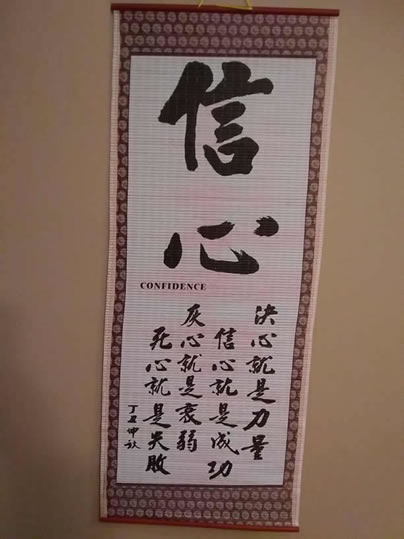 信心
CONFIDENCE
决心就是力量
信心就是成功
灰心就是衰弱
死心就是失败
丁丑仲秋